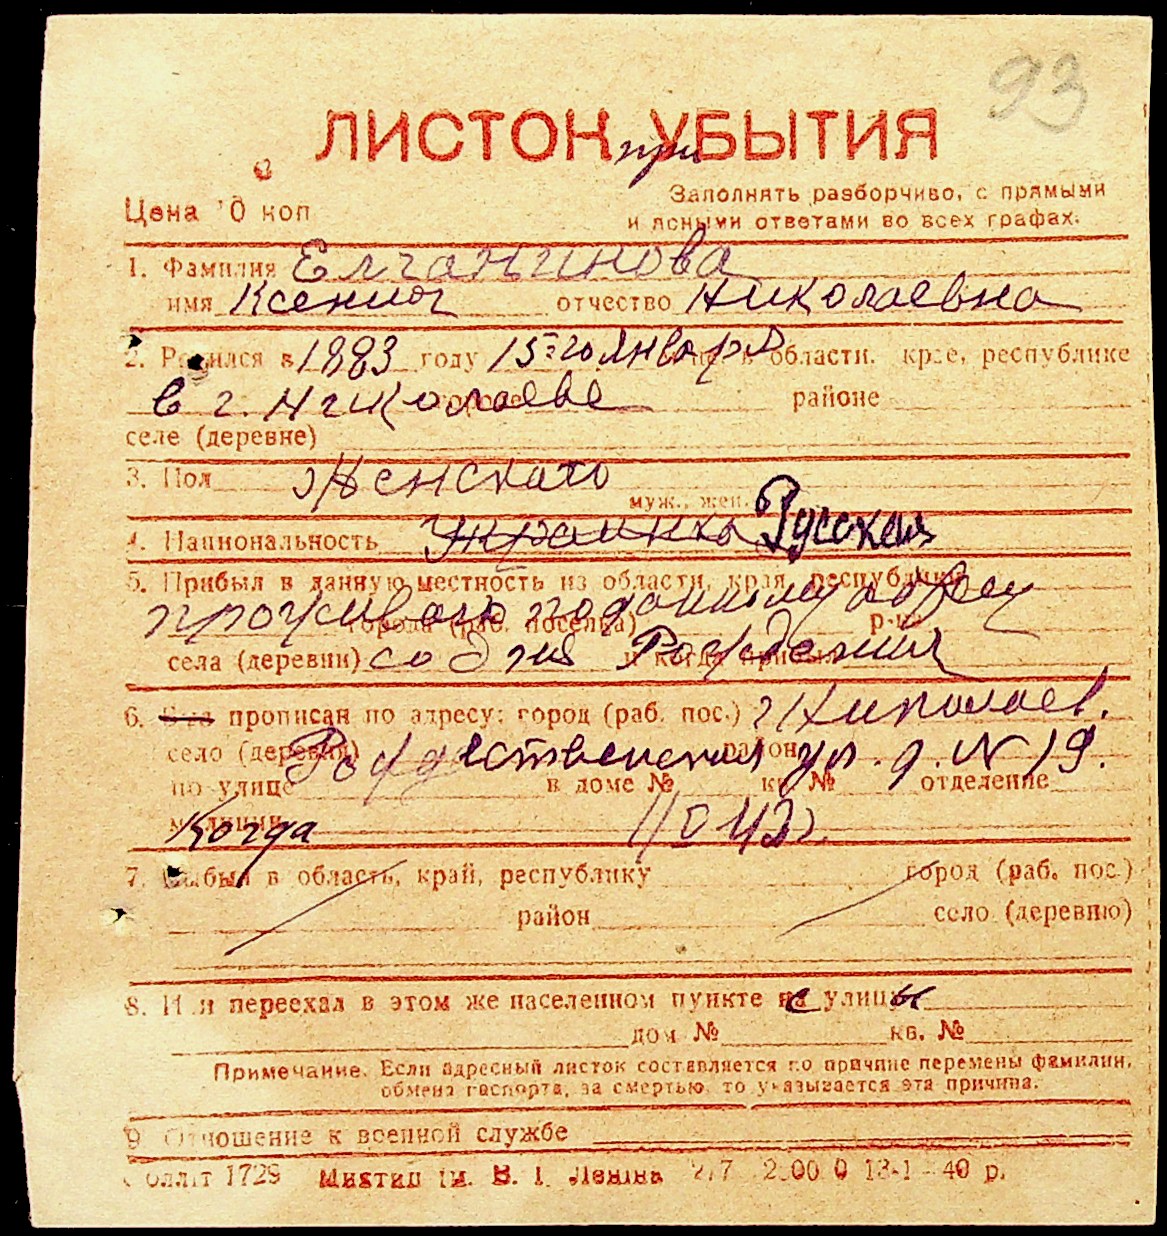 93
ЛИСТОК при УБЫТИЯ
Цена 10 коп
Заполнять разборчиво, с прямыми
и ясными ответами во всех графах.
1. Фамилия Елчанинова
имя Ксения отчество Николаевна
2. Родился в 1883 году 15го Января области, крае, республике
в г. Николаеве районе
селе (деревне)
3. Пол Женскаго
муж., жен.
4. Национальность Украинка Русская
5. Прибыл в данную местность из области, края, республики
проживаю по данному адресу
города (раб. поселка) р-на
села (деревни) со дня Рождения и когда прибыл
6. Был прописан по адресу: город (раб. пос.) г Николаев.
село (деревня) Рождественская район ул. д. № 19.
по улице в доме № кв. № отделение
милиции Когда 42г.
7. Выбыл в область, край, республику город (раб. пос.)
район село (деревню)
8. Или переехал в этом же населенном пункте с улицы
дом № кв. №
Примечание. Если адресный листок составляется по причине перемены фамилии,
обмена паспорта, за смертью, то указывается эта причина.
9. Отношение к военной службе
1729 им. В. И. Ленина 13-1-40 р.